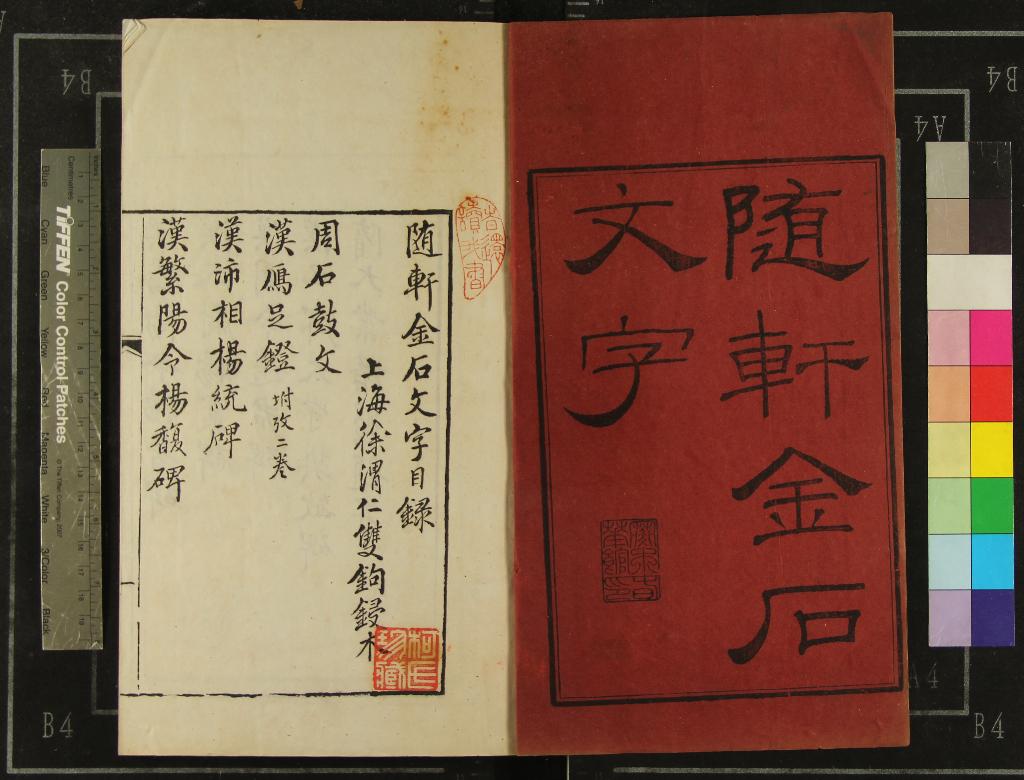 随軒金石
文字
随軒金石文字目録
上海徐渭仁雙鉤鋟木
周石鼓文
漢鴈足鐙 坿攷二卷
漢沛相楊統碑
漢繁陽令楊馥碑
柯氏珍藏
B4
B4
A4
A4
B4
B4
Inches
Centimetres
TIFFEN Color Control Patches
© The Tiffen Company, 2007
Blue
Cyan
Green
Yellow
Red
Magenta
White
3/Color
Black